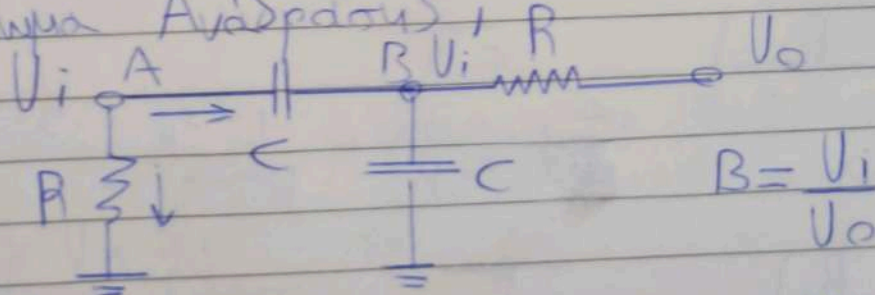 Ανάδρασης
Ui A B Ui' R Uo
C
R C B = Ui
Uo